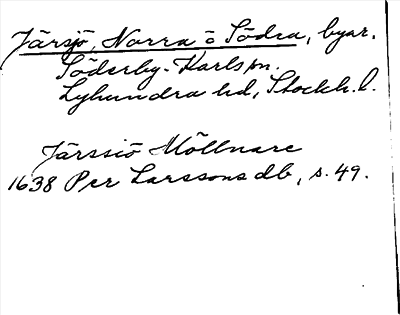 Järsjö, Norra o Södra, byar.
Söderby-Karls sn.
Lyhundra hd, Stockh. l.
Järssiö Möllnare
1638 Per Larssons db, s. 49.